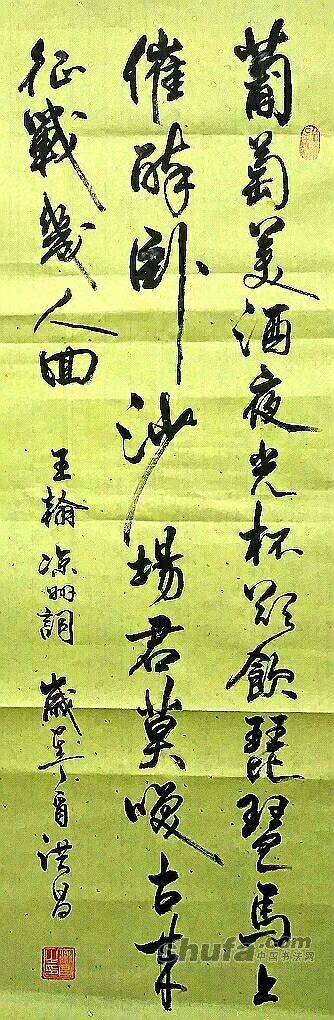 葡萄美酒夜光杯欲飲琵琶馬上
催醉卧沙場君莫咲古來
征戰幾人囬 王翰凉州詞 歲辛酉洪昌
shufa.com
中国书法网